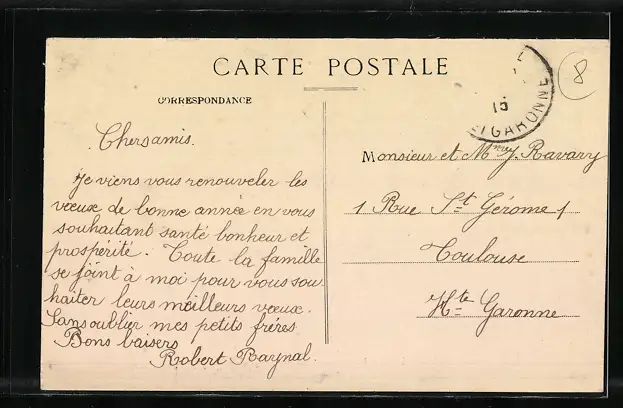 CARTE POSTALE
CORRESPONDANCE
15
GARONNE
8
Chers amis.
Je viens vous renouveler les
vœeux de bonne année en vous
souhaitant santé bonheur et
prospérité. Toute la famille
se joint à moi pour vous sou
haiter leurs meilleurs vœux.
Sans oublier mes petits fréres
Bons baisers
Robert Raynal.
Monsieur et Mme J. Ravary
1 Rue St Gérome 1
Toulouse
Hte Garonne